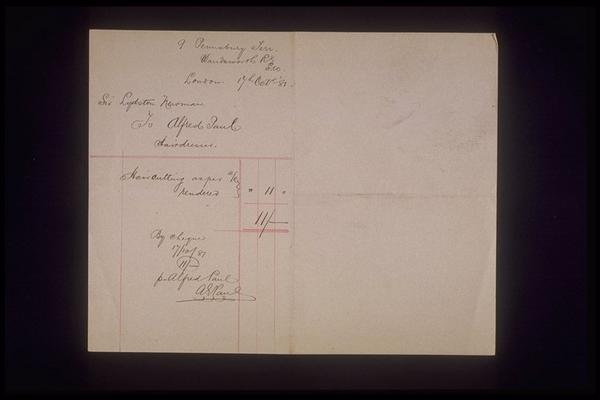 9 Pennsbury Terr.
Wandsworth Rd
London 17th Octr '87
Sir Lydston Newman
To Alfred Paul
Hairdresser.
Haircutting as per a/c
rendered " 11 "
11/-
By cheque
17/10/87
11/-
p. Alfred Paul
A E Paul